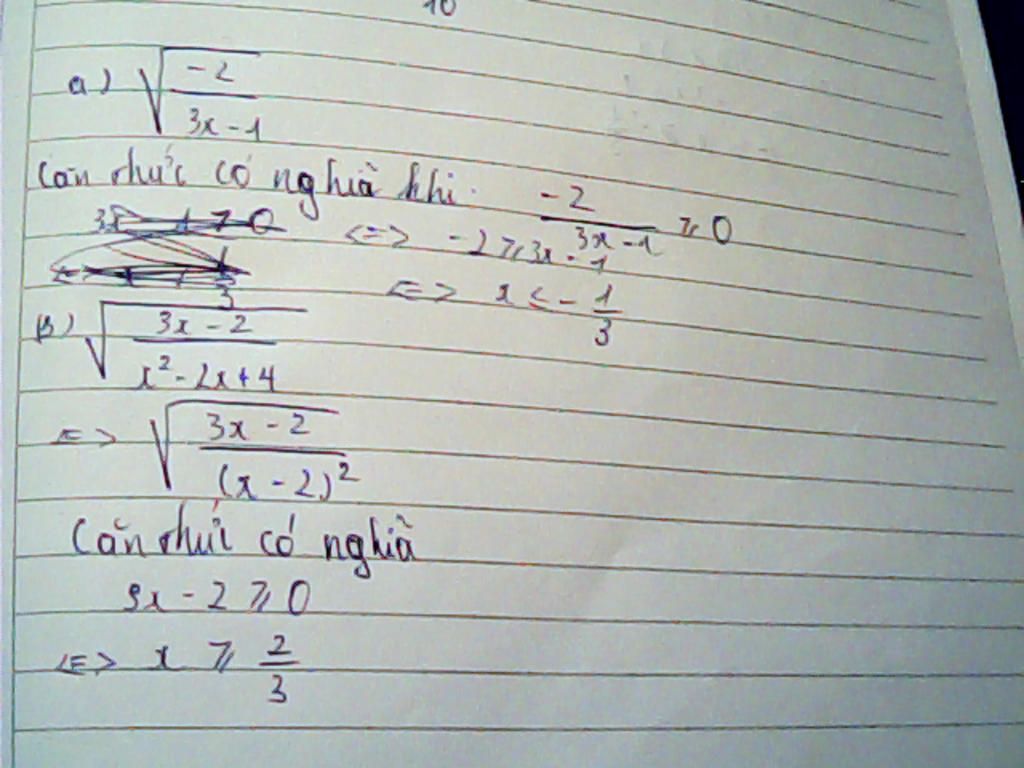 10
a) √(-2/(3x - 1))
Căn thức có nghĩa khi. -2/(3x - 1) ⩾ 0
<=> -2 ⩾ 3x - 1
<=> x < - 1/3
b) √((3x - 2)/(x² - 2x + 4))
<=> √((3x - 2)/(x - 2)²)
Căn thức có nghĩa
3x - 2 ⩾ 0
<=> x ⩾ 2/3